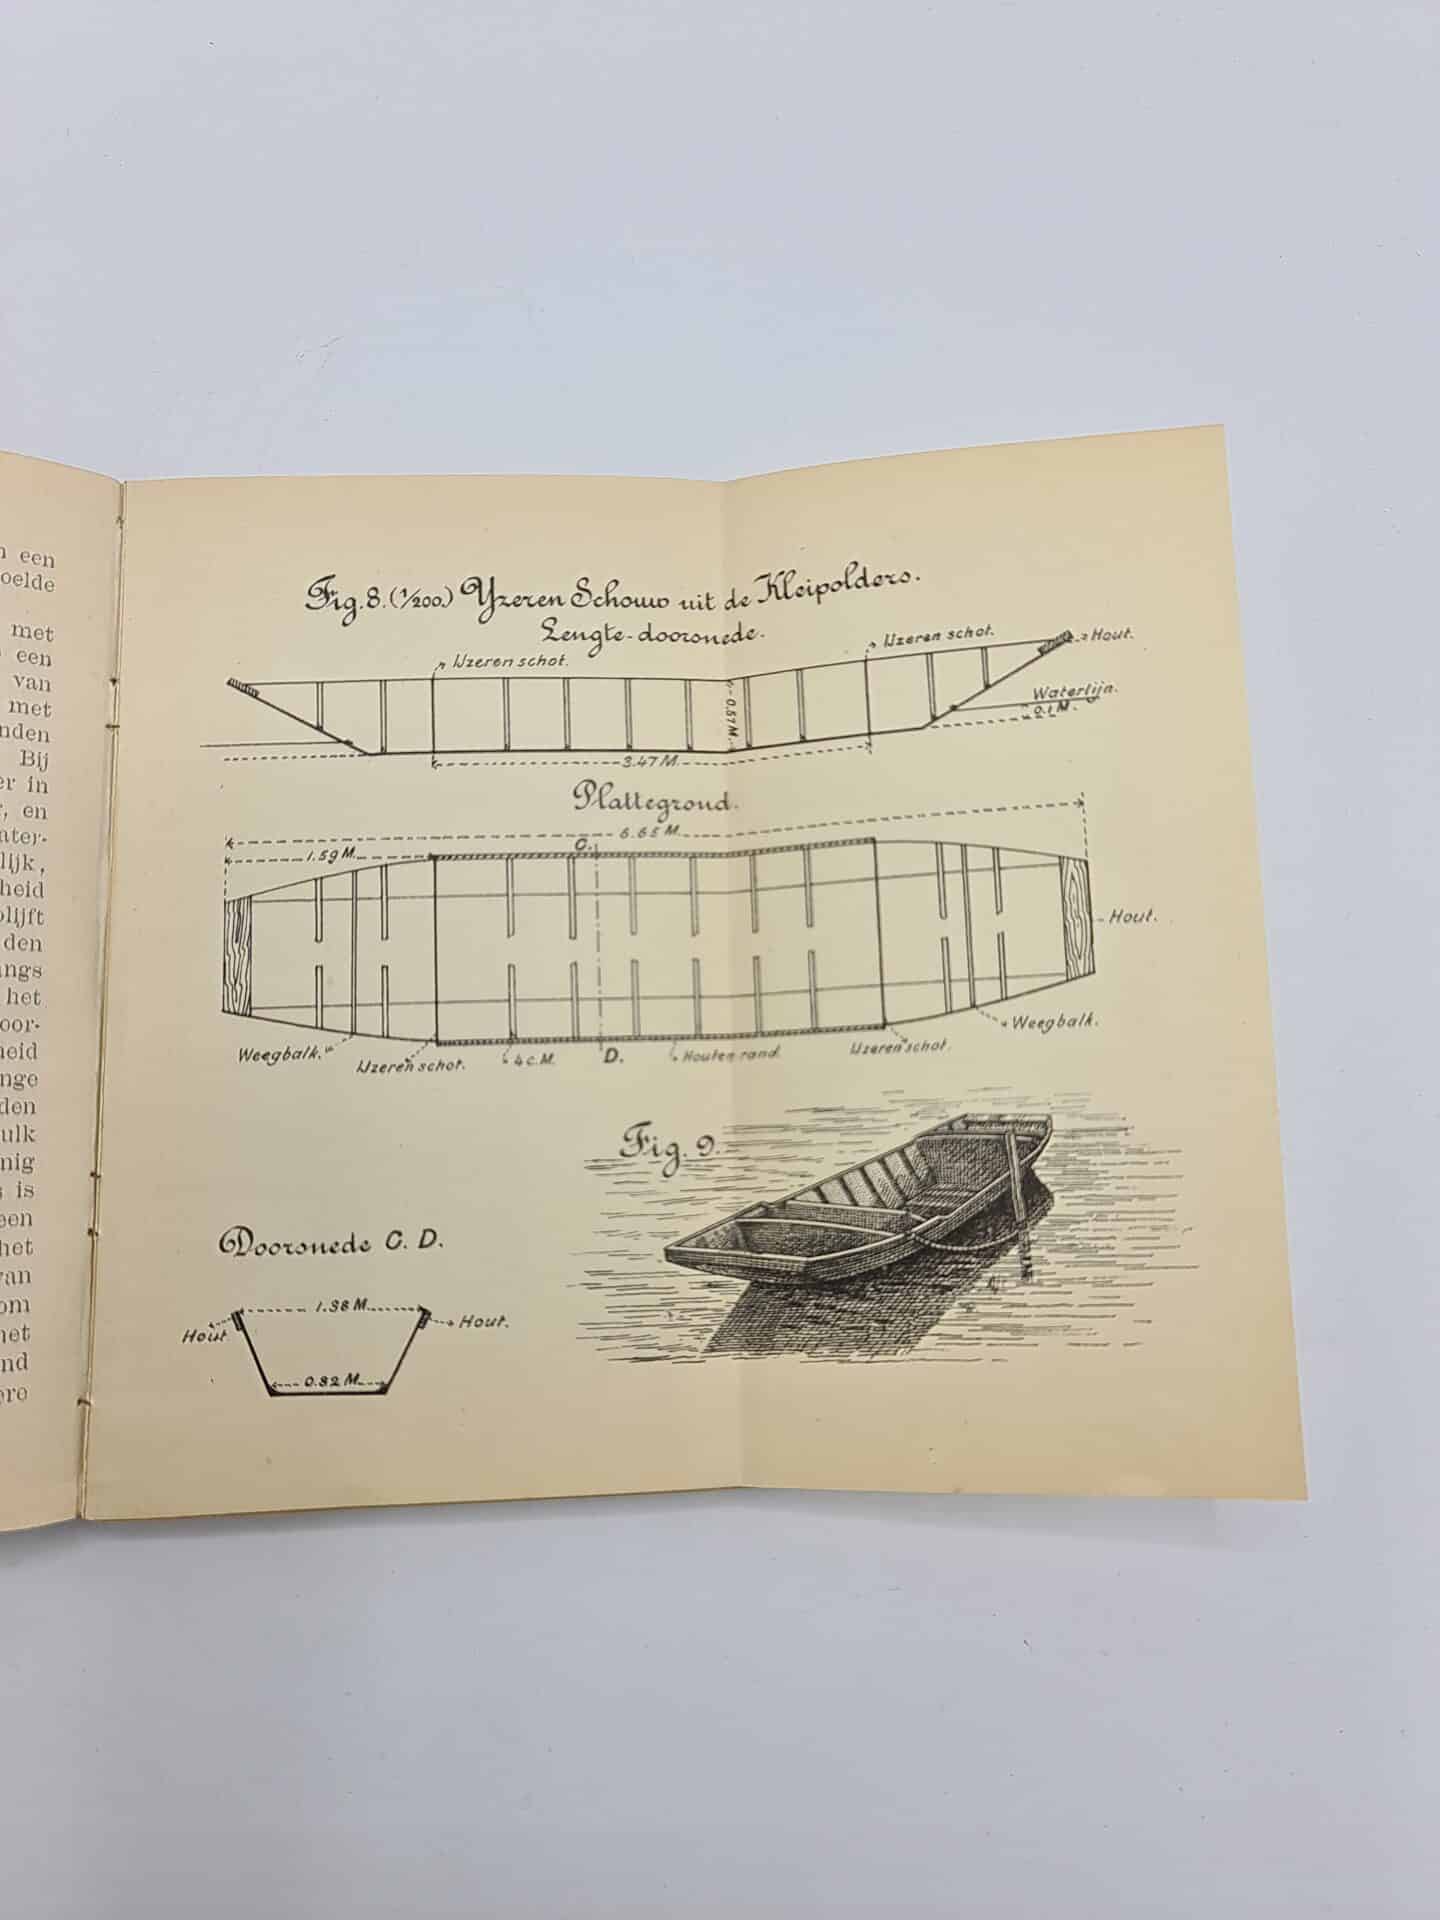 een
oelde
met
een
van
met
nden
Bij
er in
, en
ater-
lijk,
heid
blijft
den
ngs
het
oor-
heid
nge
den
ulk
nig
is
een
het
van
om
het
nd
ore
Fig. 8. (1/200.) Yzeren Schouw uit de Kleipolders.
Lengte-doorsnede.
IJzeren schot.
IJzeren schot.
Hout.
Waterlijn.
0.1 M.
0.51 M.
3.47 M.
Plattegrond.
6.65 M.
1.59 M.
C.
Hout.
Weegbalk.
IJzeren schot.
4 c.M.
D.
Houten rand.
IJzeren schot.
Weegbalk.
Fig. 9.
Doorsnede C. D.
1.38 M.
Hout
Hout.
0.82 M.